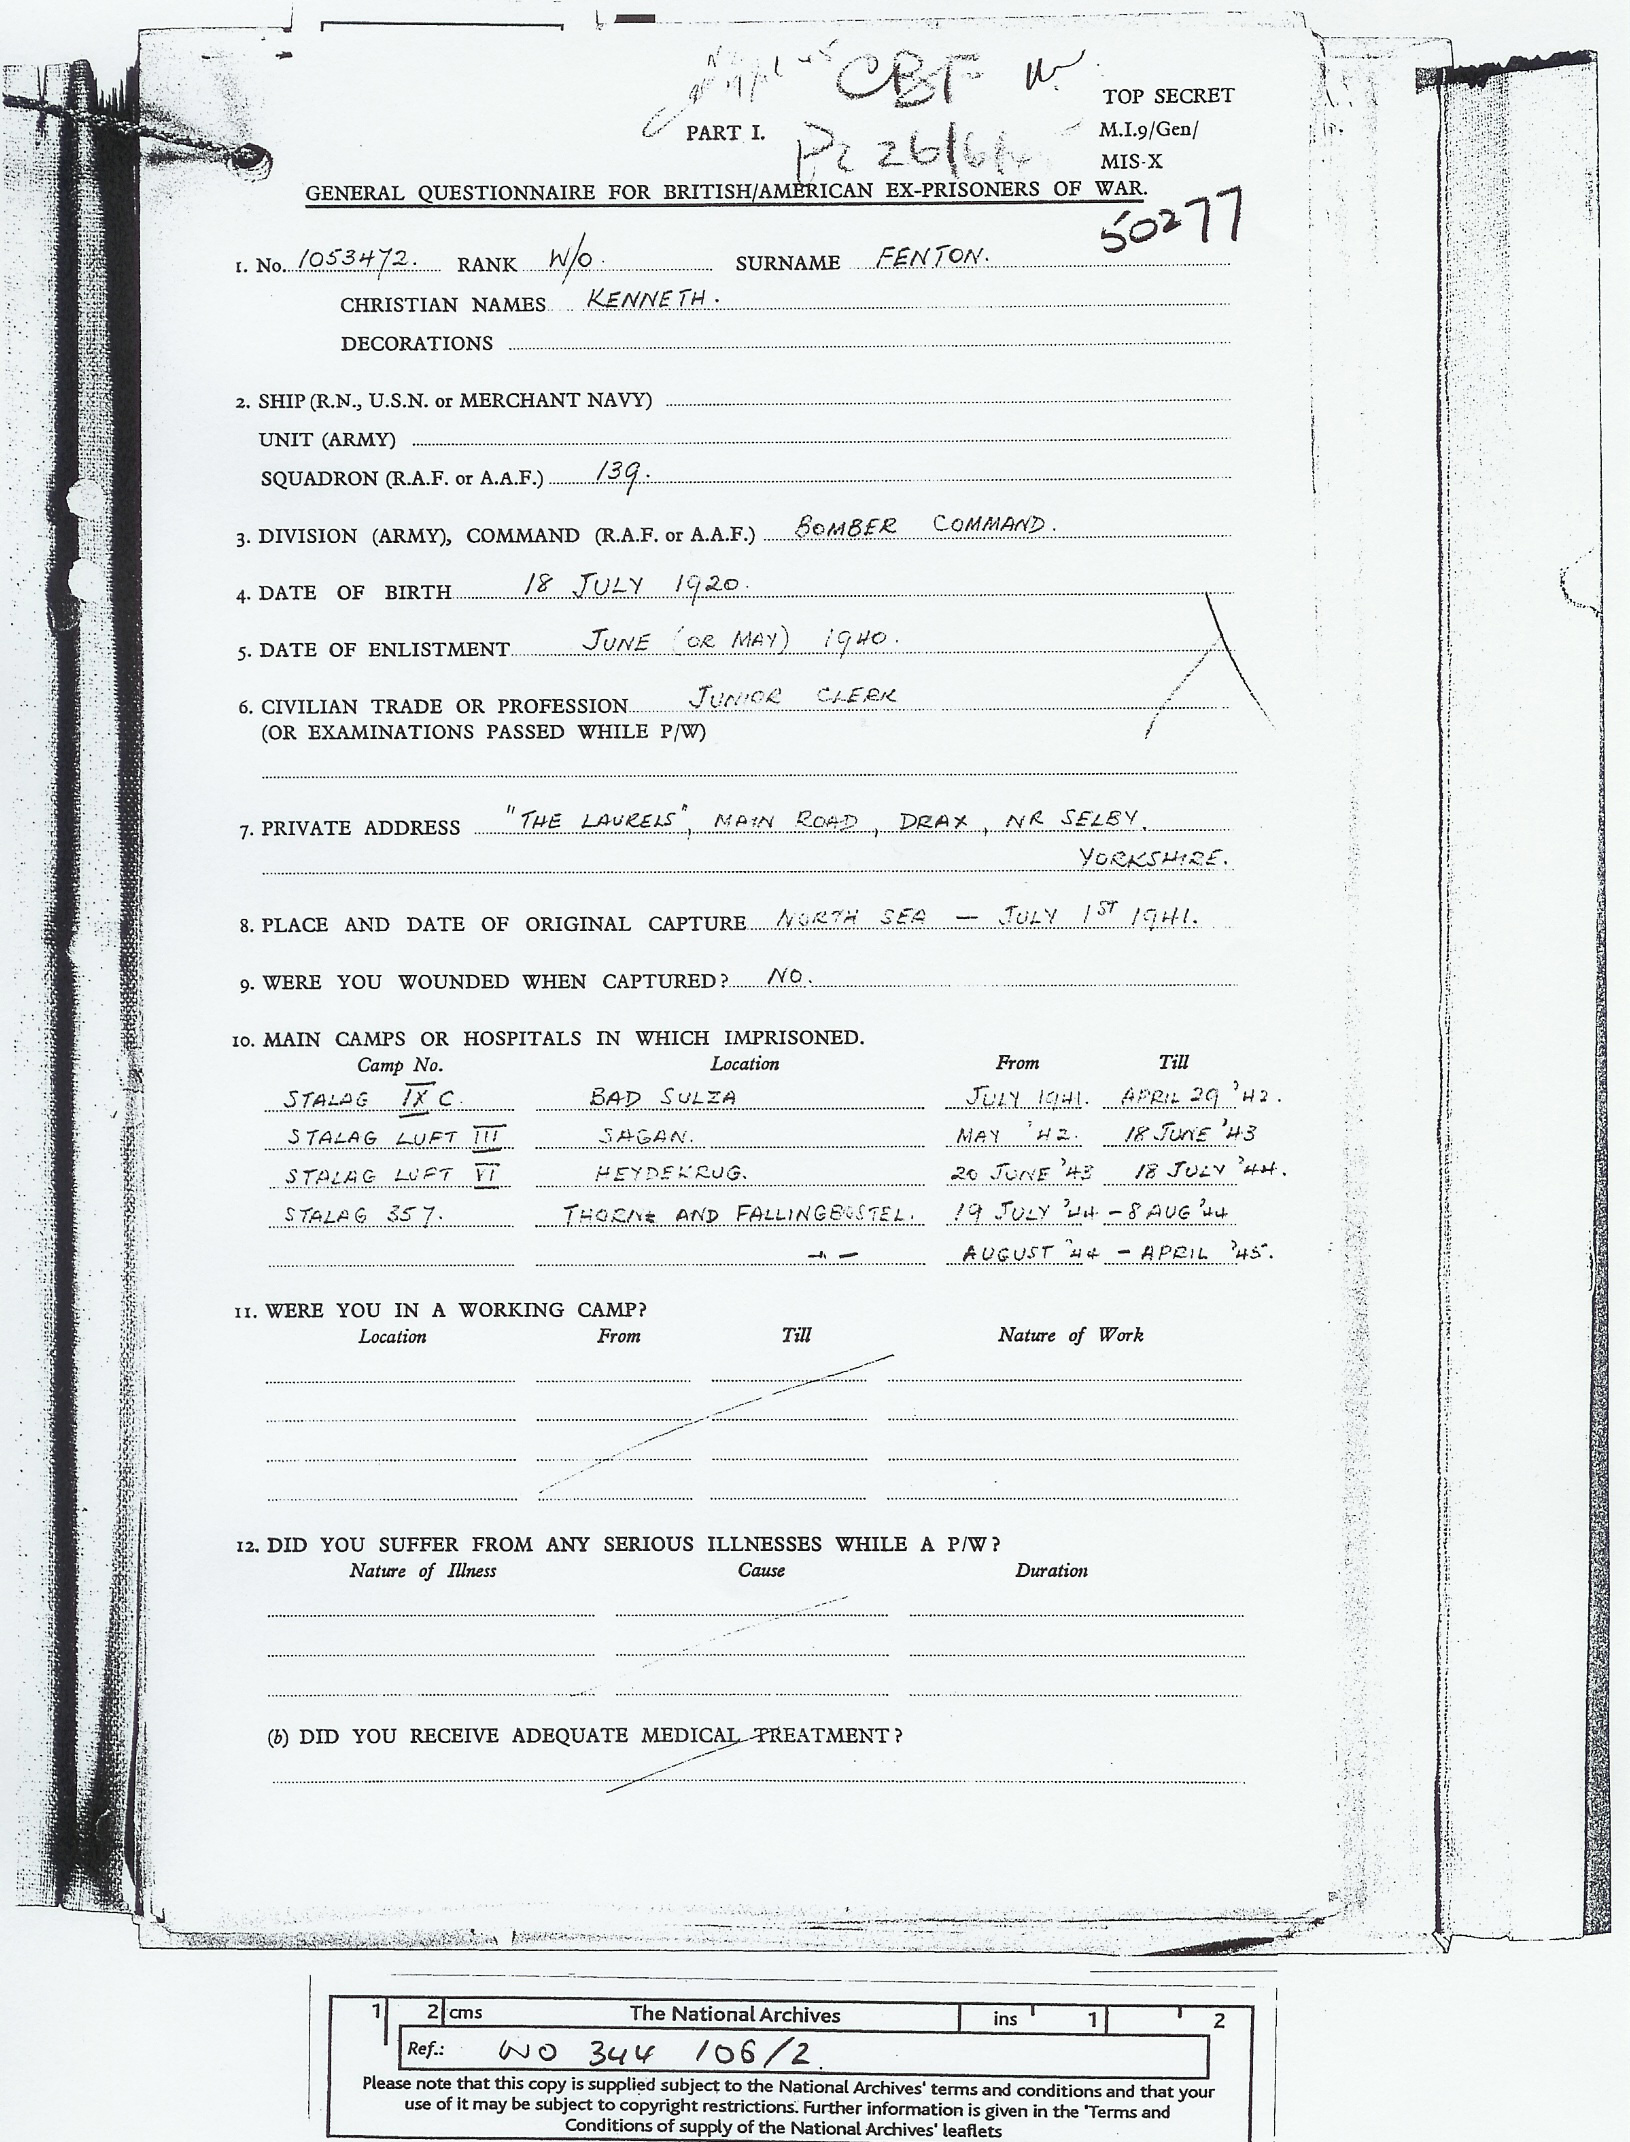 CBF
TOP SECRET
PART I.
M.I.9/Gen/
26/6/
MIS-X
GENERAL QUESTIONNAIRE FOR BRITISH/AMERICAN EX-PRISONERS OF WAR.
50277
1. No. 1053472. RANK W/O. SURNAME FENTON.
CHRISTIAN NAMES KENNETH.
DECORATIONS
2. SHIP (R.N., U.S.N. or MERCHANT NAVY)
UNIT (ARMY)
SQUADRON (R.A.F. or A.A.F.) 139.
3. DIVISION (ARMY), COMMAND (R.A.F. or A.A.F.) BOMBER COMMAND.
4. DATE OF BIRTH 18 JULY 1920.
5. DATE OF ENLISTMENT JUNE (OR MAY) 1940.
6. CIVILIAN TRADE OR PROFESSION JUNIOR CLERK
(OR EXAMINATIONS PASSED WHILE P/W)
7. PRIVATE ADDRESS "THE LAURELS", MAIN ROAD, DRAX, NR SELBY,
YORKSHIRE.
8. PLACE AND DATE OF ORIGINAL CAPTURE NORTH SEA — JULY 1ST 1941.
9. WERE YOU WOUNDED WHEN CAPTURED? NO.
10. MAIN CAMPS OR HOSPITALS IN WHICH IMPRISONED.
Camp No. Location From Till
STALAG IX C. BAD SULZA JULY 1941. APRIL 29 '42.
STALAG LUFT III SAGAN. MAY '42. 18 JUNE '43
STALAG LUFT VI HEYDEKRUG. 20 JUNE '43 18 JULY '44.
STALAG 357. THORNE AND FALLINGBOSTEL. 19 JULY '44 - 8 AUG '44
-"- AUGUST '44 - APRIL '45.
11. WERE YOU IN A WORKING CAMP?
Location From Till Nature of Work
12. DID YOU SUFFER FROM ANY SERIOUS ILLNESSES WHILE A P/W?
Nature of Illness Cause Duration
(b) DID YOU RECEIVE ADEQUATE MEDICAL TREATMENT?
1 2 cms The National Archives ins 1 2
Ref.: WO 344 106/2
Please note that this copy is supplied subject to the National Archives' terms and conditions and that your
use of it may be subject to copyright restrictions. Further information is given in the 'Terms and
Conditions of supply of the National Archives' leaflets